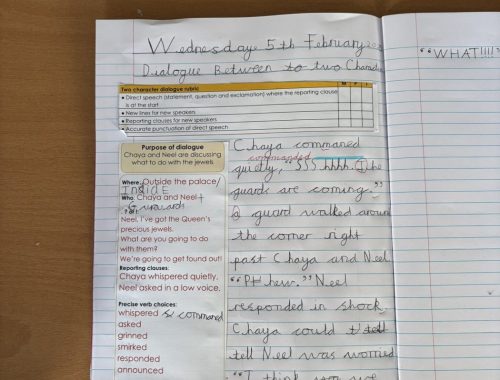 Wednesday 5th February
Dialogue Between to two Character
"WHAT!!!!
Two character dialogue rubric
Direct speech (statement, question and exclamation) where the reporting clause
is at the start
New lines for new speakers
Reporting clauses for new speakers
Accurate punctuation of direct speech
Purpose of dialogue
Chaya and Neel are discussing
what to do with the jewels.
Where: Outside the palace/
Inside
Who Chaya and Neel +
Guards
Neel, I've got the Queen's
precious jewels.
What are you going to do
with them?
We're going to get found out!
Reporting clauses:
Chaya whispered quietly,
Neel asked in a low voice,
Precise verb choices:
whispered commaned
asked
grinned
smirked
responded
announced
Chaya commaned
commanded
quietly, "SSS hhhh. The
guards are coming."
a guard walked around
the corner right
past Chaya and Neel.
"Phew." Neel
responded in shock,
Chaya could tell
tell Neel was worried
"I think you we